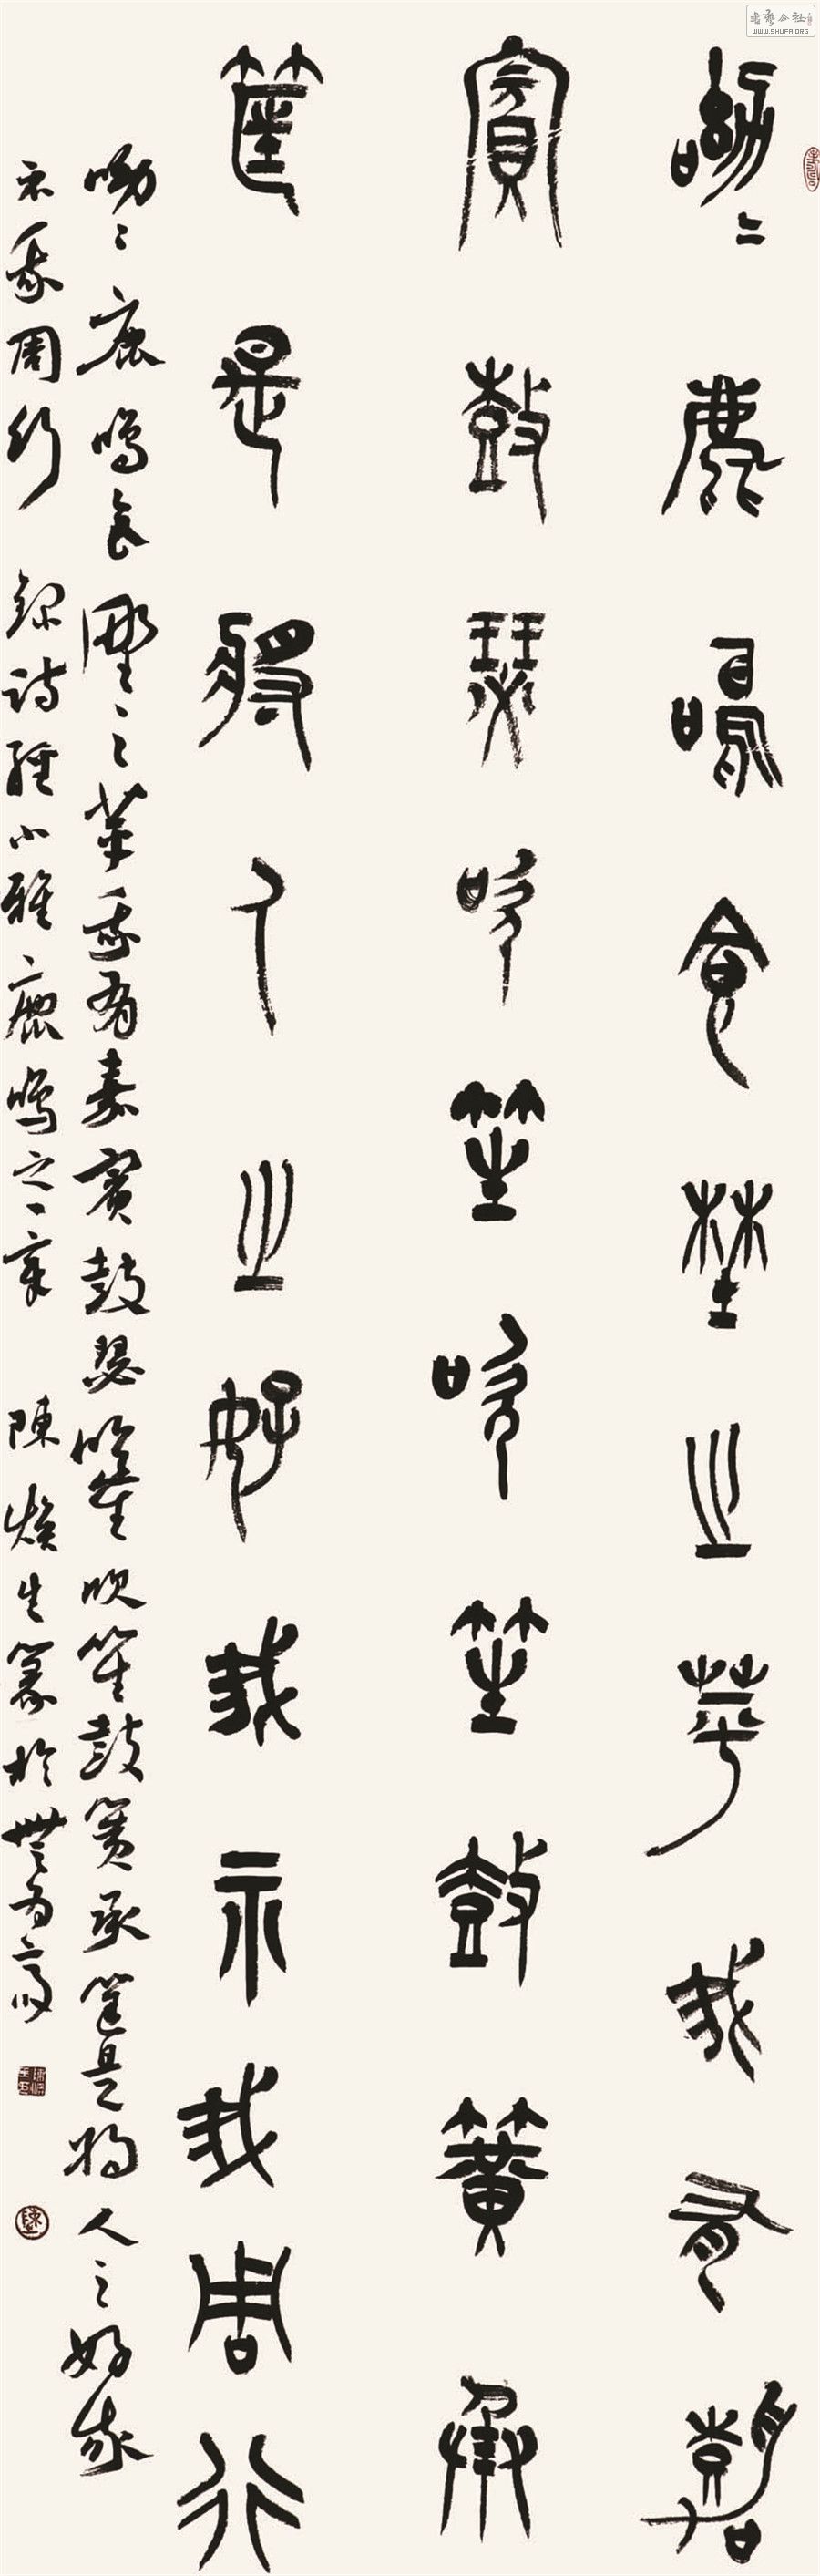 呦〻鹿鳴食野之苹我有嘉
賓鼓瑟吹笙吹笙鼓簧承
筐是將人之好我示我周行
呦〻鹿鳴食野之苹我有嘉賓鼓瑟吹笙吹笙鼓簧承筐是將人之好我
示我周行 錄詩經小雅鹿鳴之一章 陳煥生篆於無為
書藝公社
WWW.SHUFA.ORG